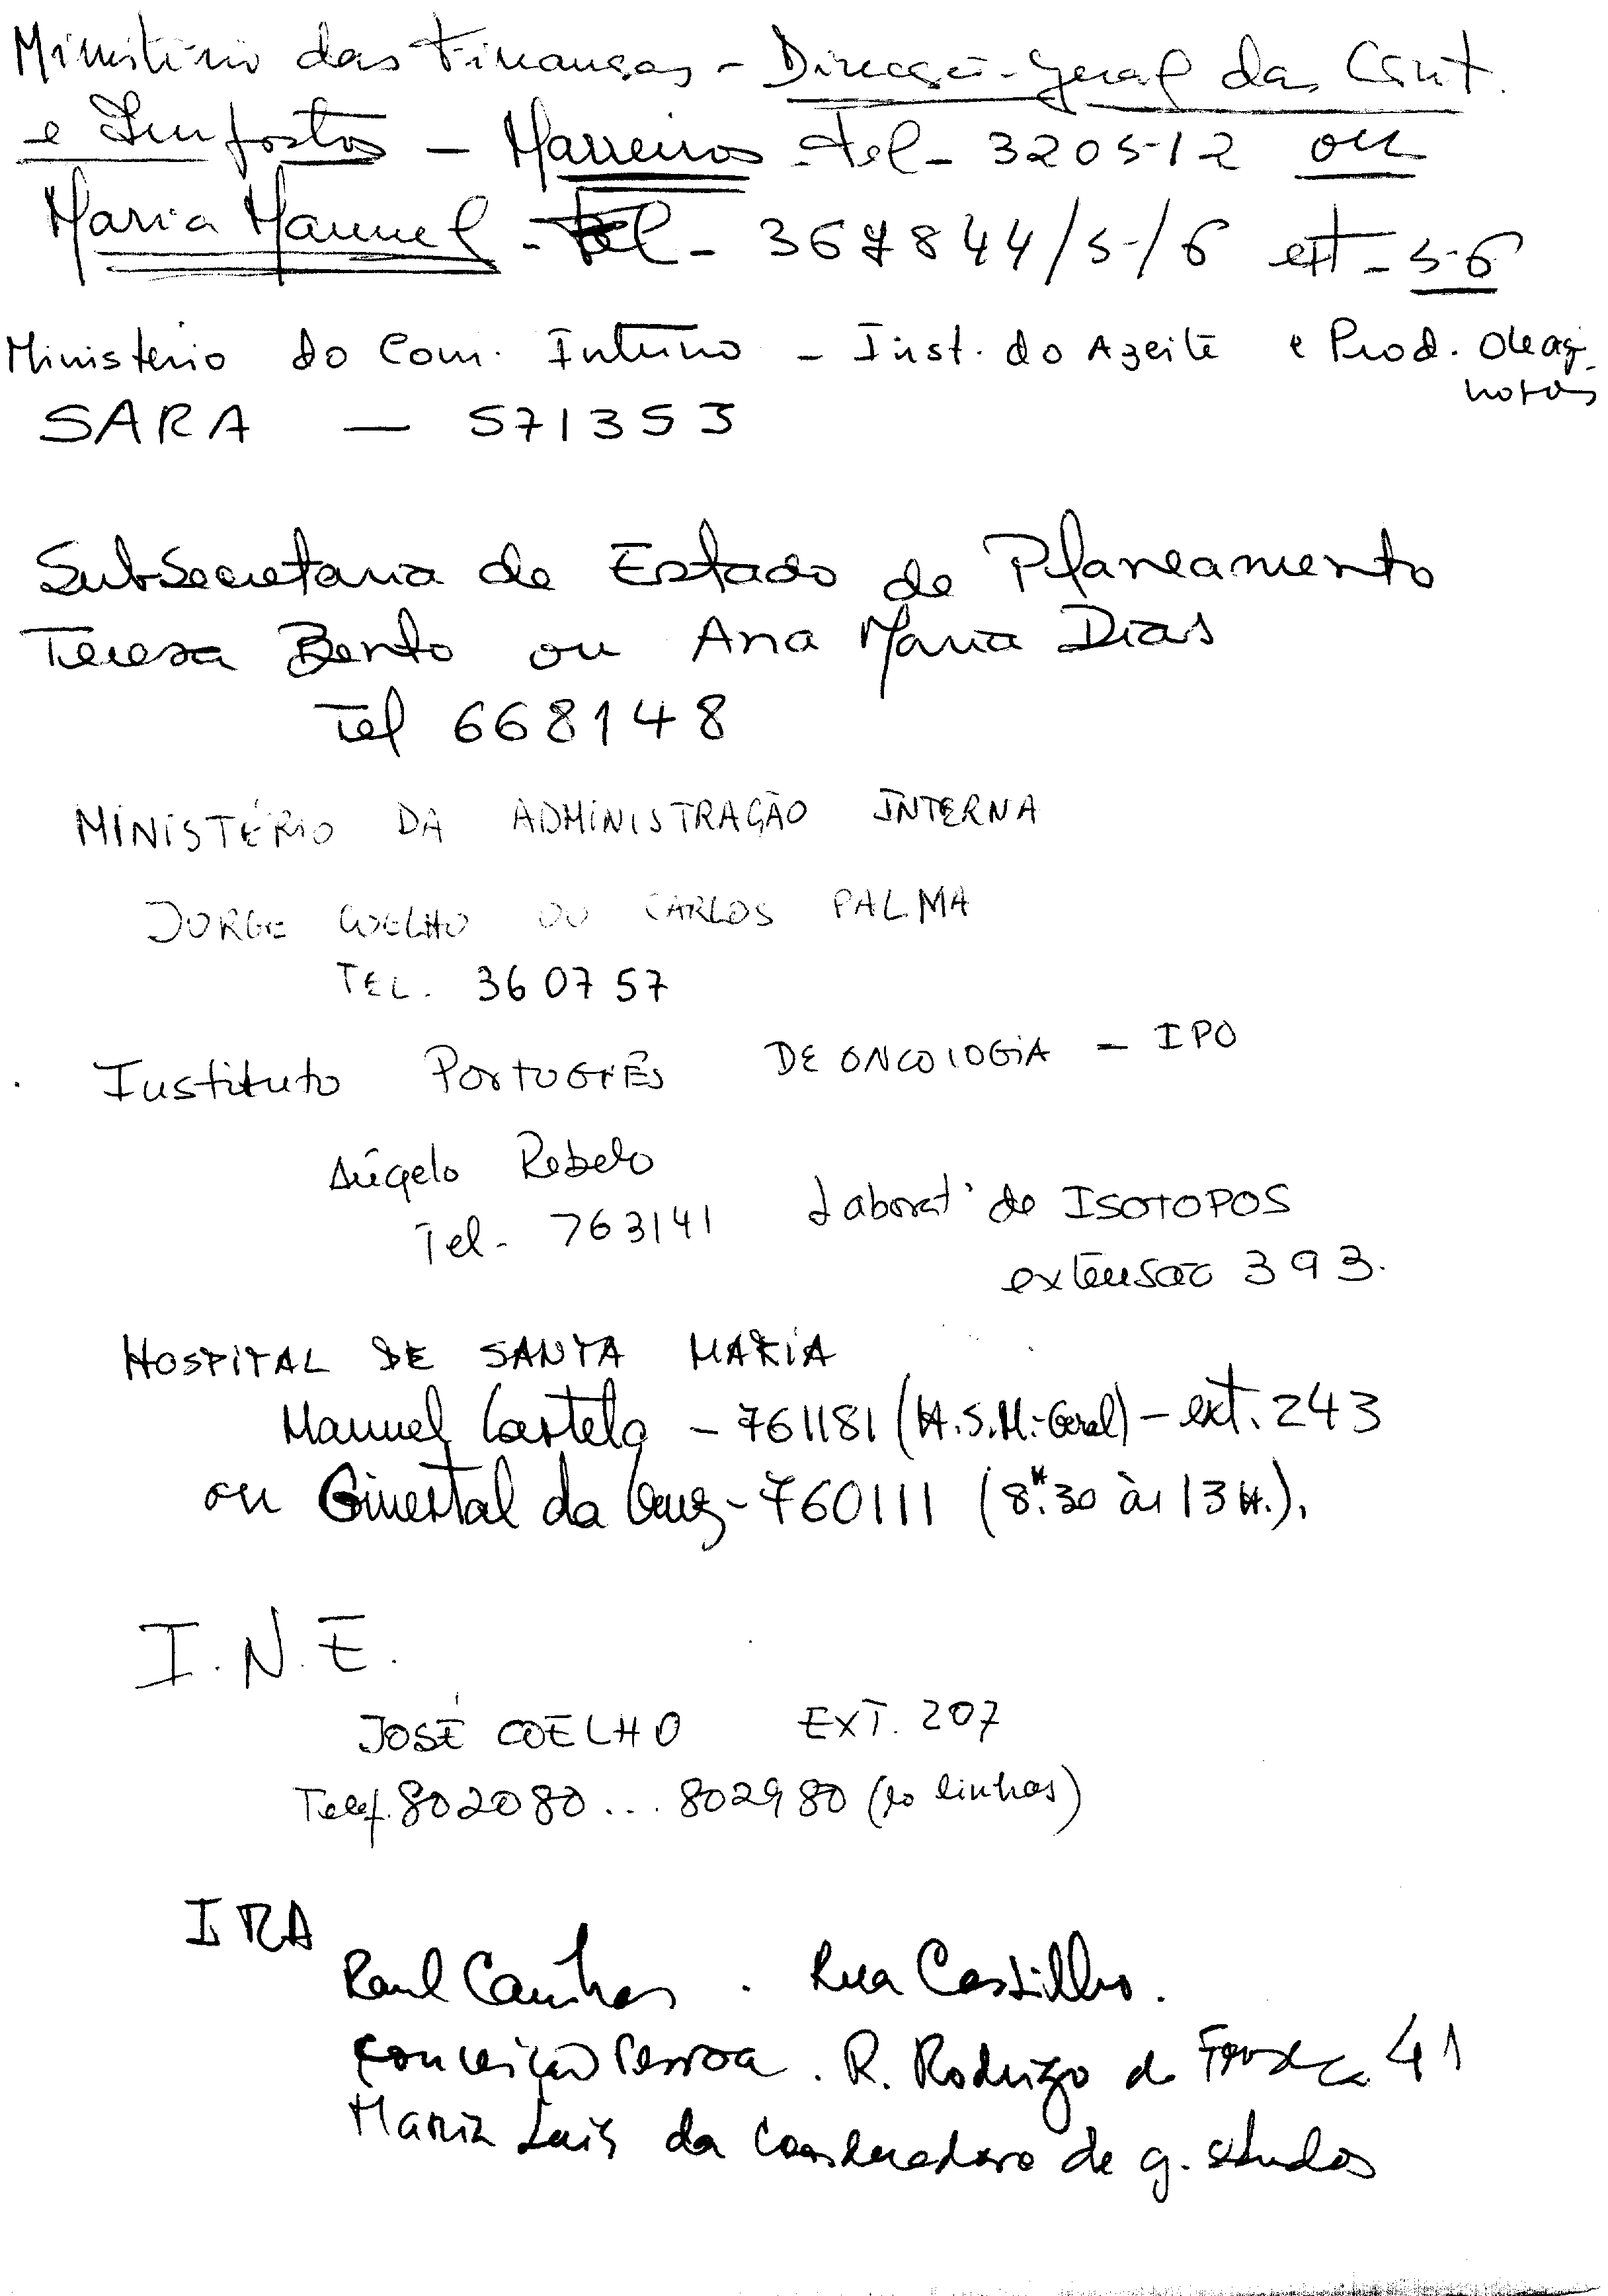 Ministério das Finanças - Direcção-geral das Cont.
e Impostos - Marreiros - tel - 320512 ou
Maria Manuel - Tel - 367844/5/6 ext - 56
Ministerio do Com. Interno - Inst. do Azeite e Prod. Oleagi-
nosas
SARA - 571353
SubSecretaria de Estado de Planeamento
Teresa Bento ou Ana Maria Dias
Tel 668148
MINISTÉRIO DA ADMINISTRAÇÃO INTERNA
JORGE COELHO OU CARLOS PALMA
TEL. 360757
Instituto PORTUGUÊS DE ONCOLOGIA - IPO
Ângelo Rebelo
Tel - 763141 Laborat. de ISOTOPOS
extensão 393.
HOSPITAL DE SANTA MARIA
Manuel Castelo - 761181 (H.S.M.-Geral) - ext. 243
ou Ginestal da Cruz - 760111 (8H.30 às 13H.).
I.N.E.
JOSÉ COELHO EXT. 207
Telef. 802080... 802980 (10 linhas)
IRA
Raul Caninhas . Rua Castilho.
Conceição Pessoa . R. Rodrigo da Fonseca 41
Maria Luis da Coordenadora de g. estudos